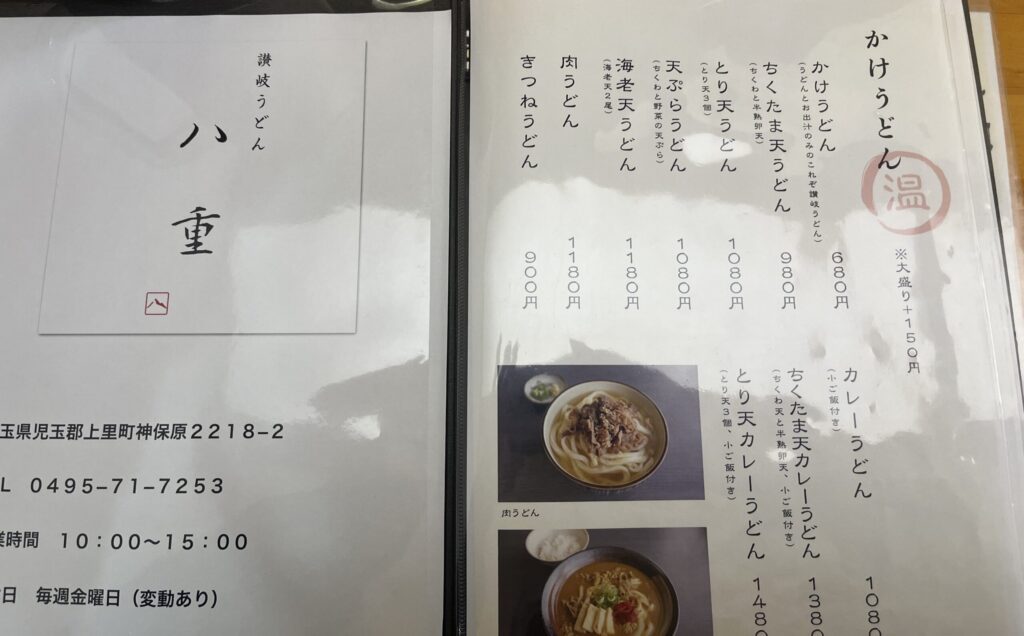 讃岐うどん
八重
八
玉県児玉郡上里町神保原2218−2
L 0495−71−7253
業時間 10:00〜15:00
日 毎週金曜日(変動あり)
かけうどん
温
※大盛り+150円
かけうどん 680円
(うどんとお出汁のみのこれぞ讃岐うどん)
ちくたま天うどん 980円
(ちくわと半熟卵天)
とり天うどん 1080円
(とり天3個)
天ぷらうどん 1080円
(ちくわと野菜の天ぷら)
海老天うどん 1180円
(海老天2尾)
肉うどん 1180円
きつねうどん 900円
カレーうどん 1080
(小ご飯付き)
ちくたま天カレーうどん 1380
(ちくわ天と半熟卵天、小ご飯付き)
とり天カレーうどん 1480
(とり天3個、小ご飯付き)
肉うどん